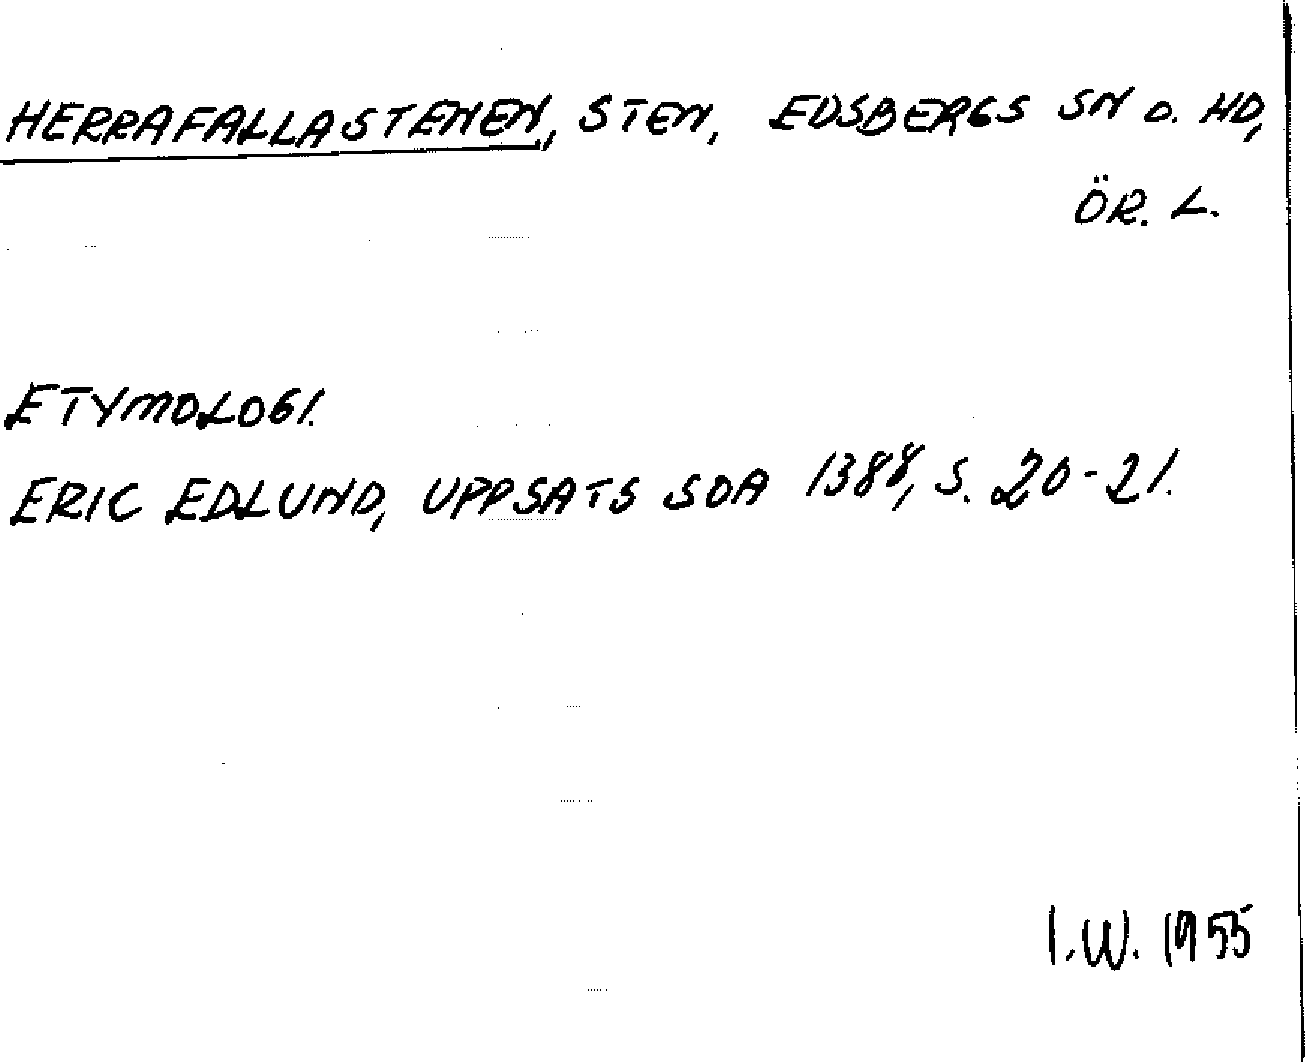 HERRAFALLASTENEN, STEN, EDSBERGS SN O. HD,
ÖR. L.
ETYMOLOGI.
ERIC EDLUND, UPPSATS SOA 1388, S. 20-21.
I.W. 1955